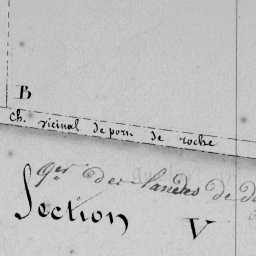 B
Ch. vicinal de porn. de roche
qer des Landes de
Section V